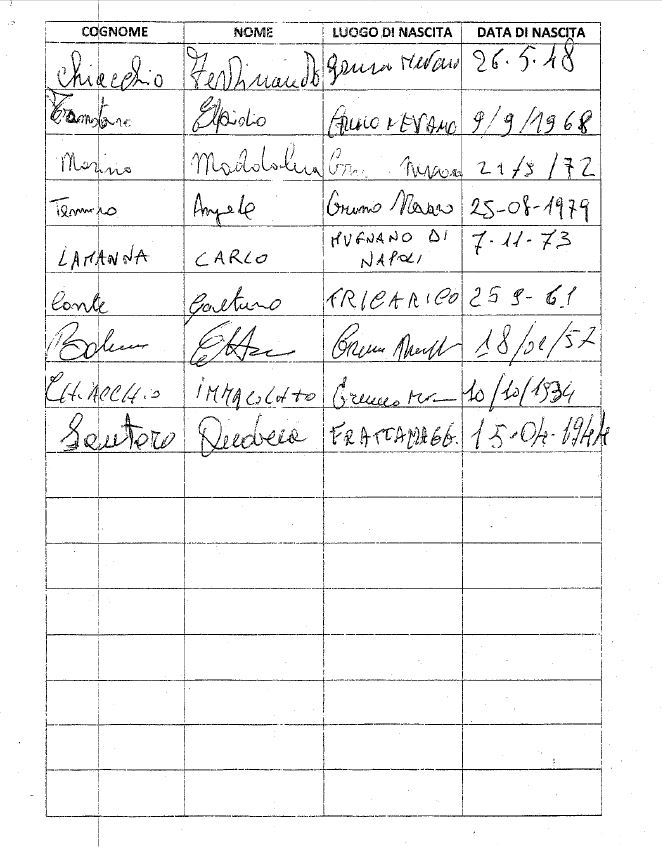 COGNOME NOME LUOGO DI NASCITA DATA DI NASCITA
Chiacchio Ferdinando Grumo Nevano 26.5.48
Elpidio GRUMO NEVANO 9/9/1968
Marino Maddalena 21/9/72
Angela Grumo Nevano 25-08-1979
LAMANNA CARLO MUGNANO DI NAPOLI 7-11-73
Conte Gaetano TRICARICO 25 9-61
18/01/57
CHIACCHIO IMMACOLATO Grumo 10/10/1934
Santoro FRATTAMAGG. 15-04-1944